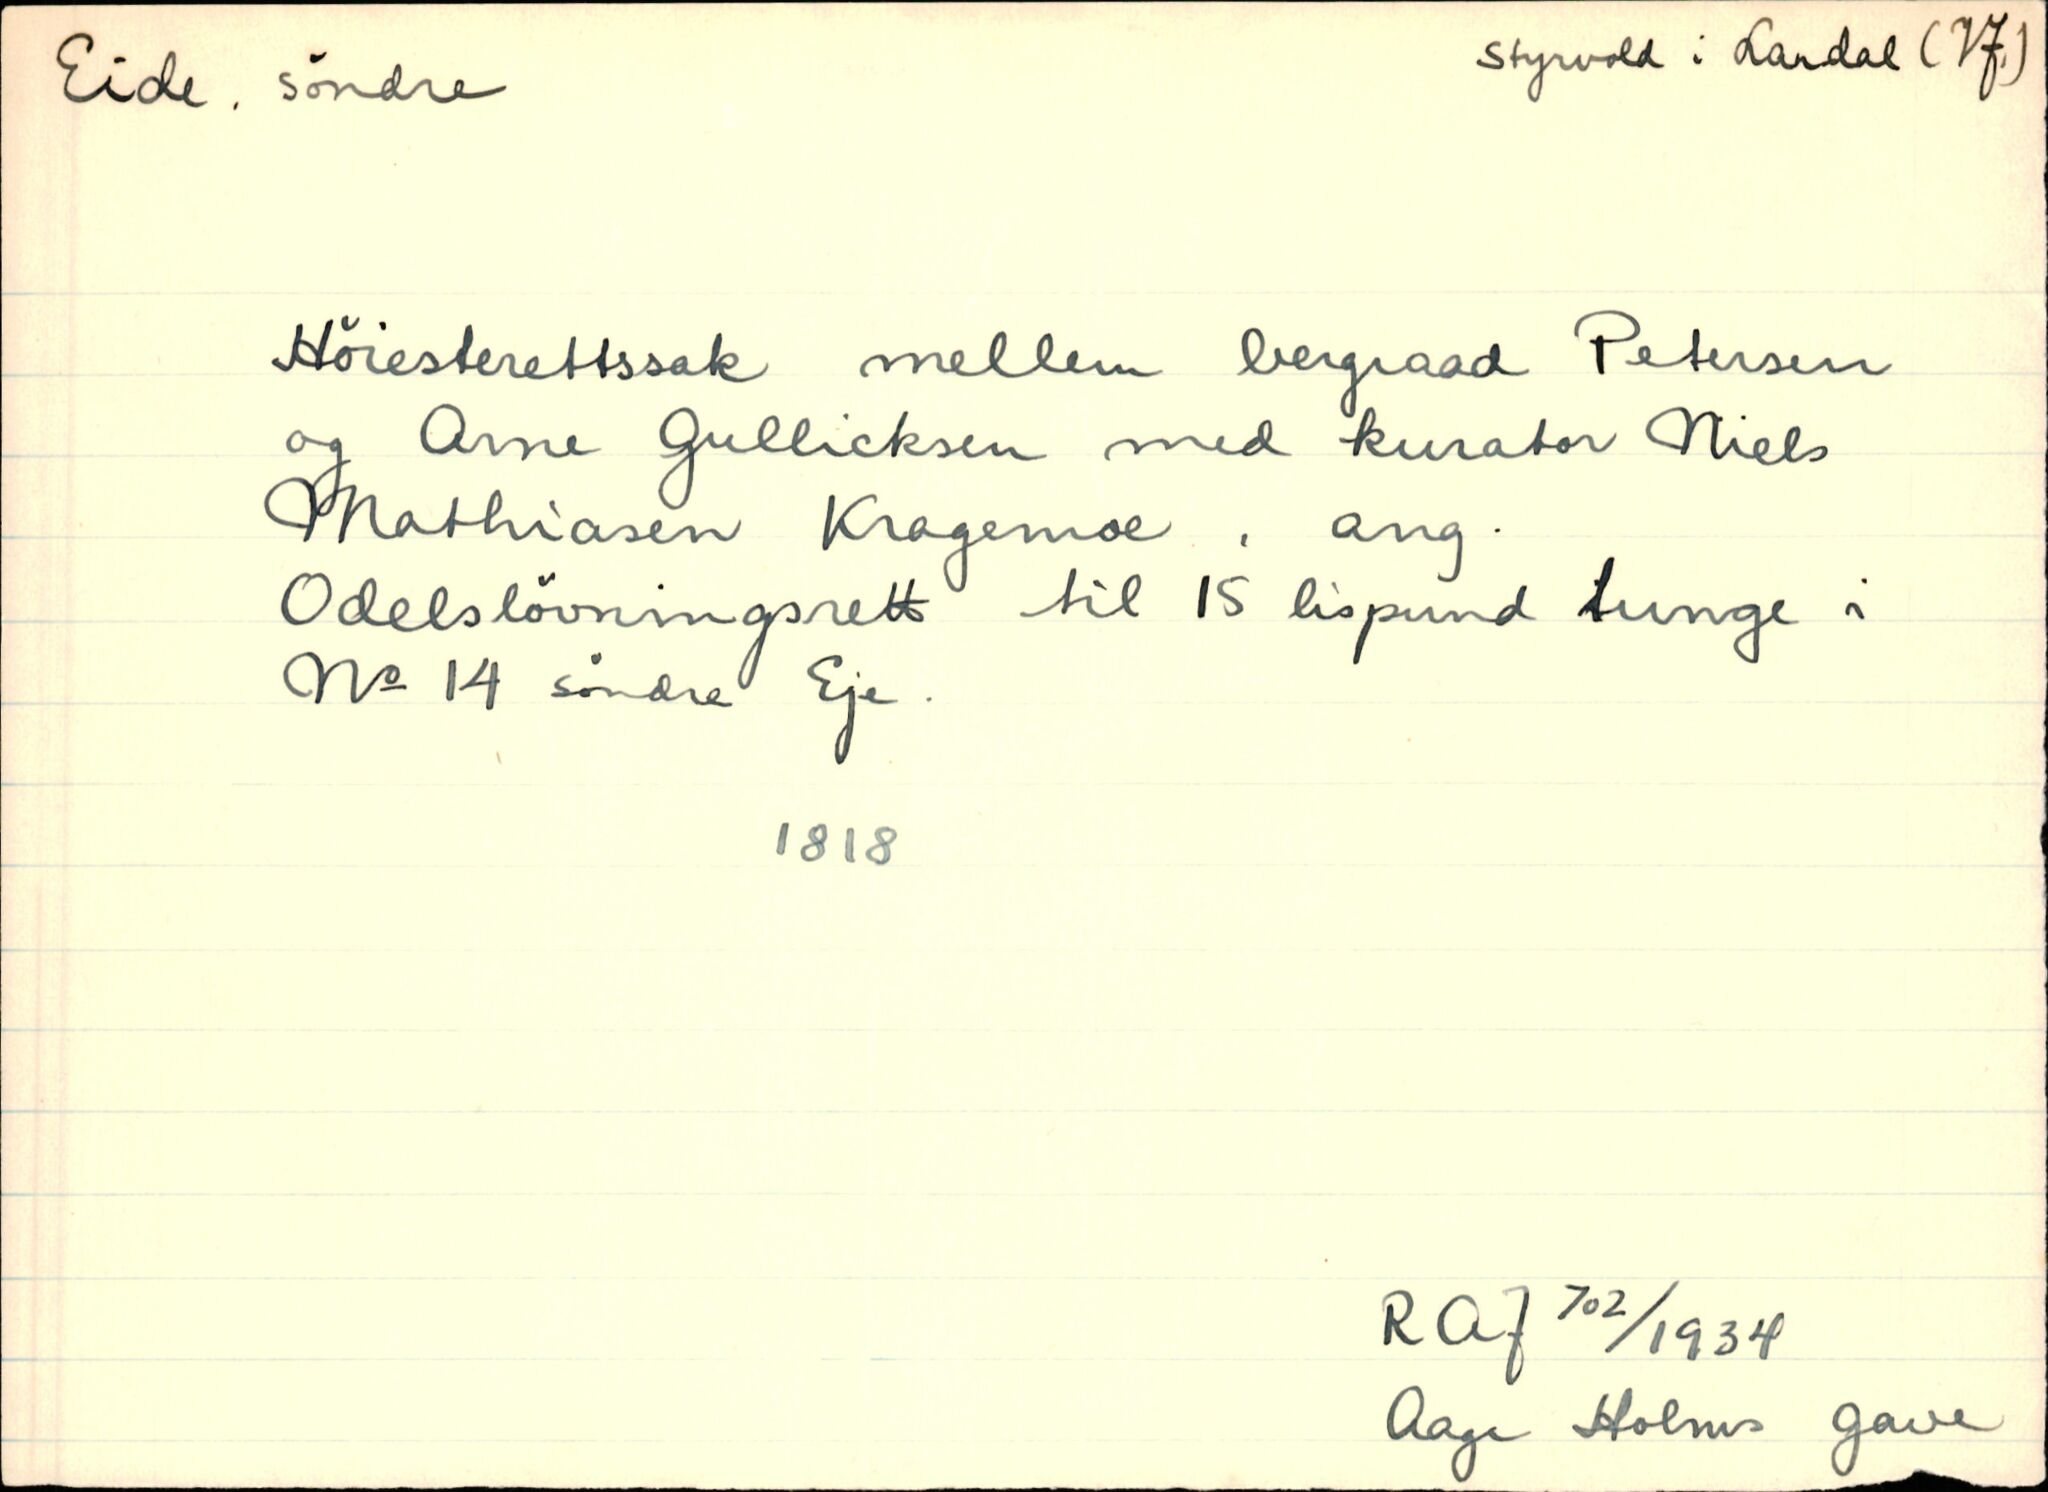 Eide, söndre
Styrvold i Lardal (Vf.)
Höiesterettssak mellem bergraad Petersen
og Arne Gullicksen med kurator Niels
Mathiasen Kragemoe, ang.
Odelslövningsrett til 15 lispund tunge i
No 14 söndre Eje.
1818
RAJ 702/1934
Aage Holms gave